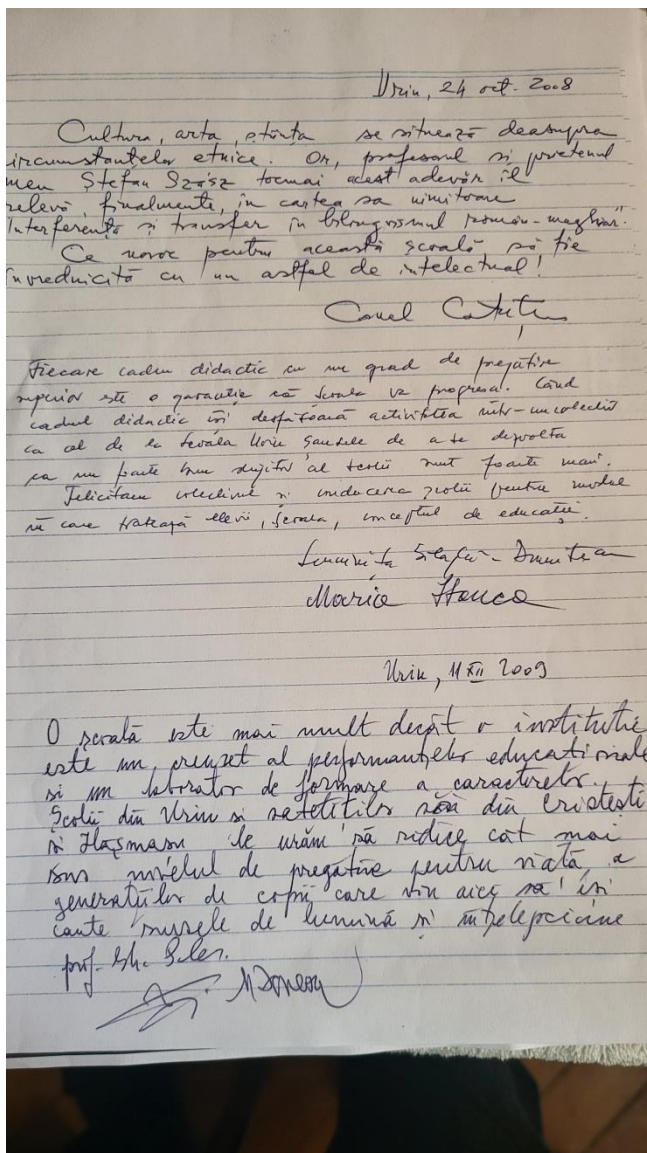 Uriu, 24 oct. 2008
Cultura, arta, știința se situează deasupra
ircumstanțelor etnice. Or, profesorul și prietenul
meu Ștefan Szász tocmai acest adevăr îl
relevă, finalmente, în cartea sa uimitoare
Interferență și transfer în bilingvismul român-maghiar".
Ce noroc pentru această școală să fie
învrednicită cu un astfel de intelectual!
Cornel
Fiecare cadru didactic cu un grad de pregătire
superior este o garanție că școala va progresa. Când
cadrul didactic își desfășoară activitatea într-un colectiv
ca cel de la Școala Uriu șansele de a se dezvolta
ca un foarte bun slujitor al școlii sunt foarte mari.
Felicităm colectivul și conducerea școlii pentru modul
în care tratează elevii, școala, conceptul de educație.
Maria
Uriu, 11 XII 2009
O școală este mai mult decât o instituție
este un creuzet al performanțelor educaționale
și un laborator de formare a caracterelor.
Școlii din Uriu și sateliților săi din Cristești
și Hășmașu le urăm să ridice cât mai
sus nivelul de pregătire pentru viață, a
generațiilor de copii care vin aici să își
caute sursele de lumină și înțelepciune
prof. Gh.